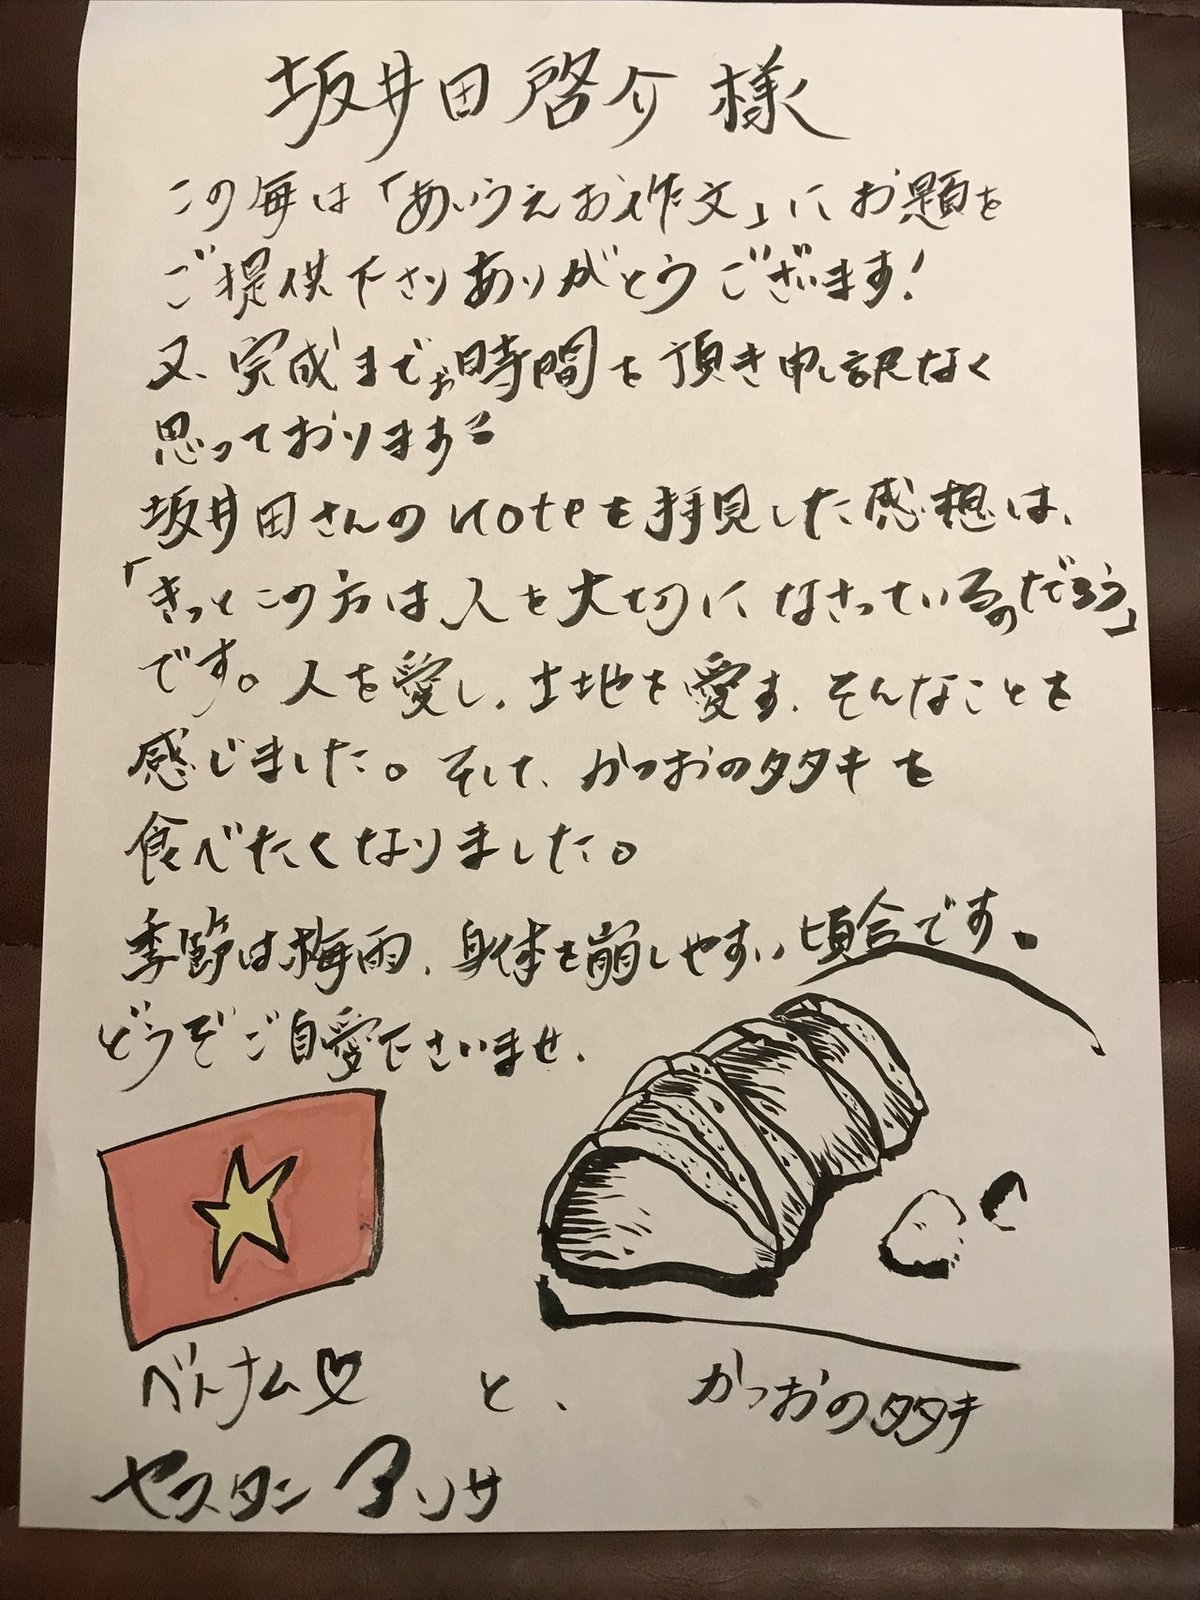 坂井田 啓介 様
この毎は「あいうえお作文」にお題を
ご提供下さりありがとうございます!
又、完成までお時間を頂き申し訳なく
思っております
坂井田さんのnoteを拝見した感想は、
「きっとこの方は人を大切になさっているのだろう」
です。人を愛し、土地を愛す、そんなことを
感じました。そして、かつおのタタキを
食べたくなりました。
季節は梅雨、身体を崩しやすい頃合です。
どうぞご自愛下さいませ、
ベトナム♡ と、 かつおのタタキ
セスタン アリサ